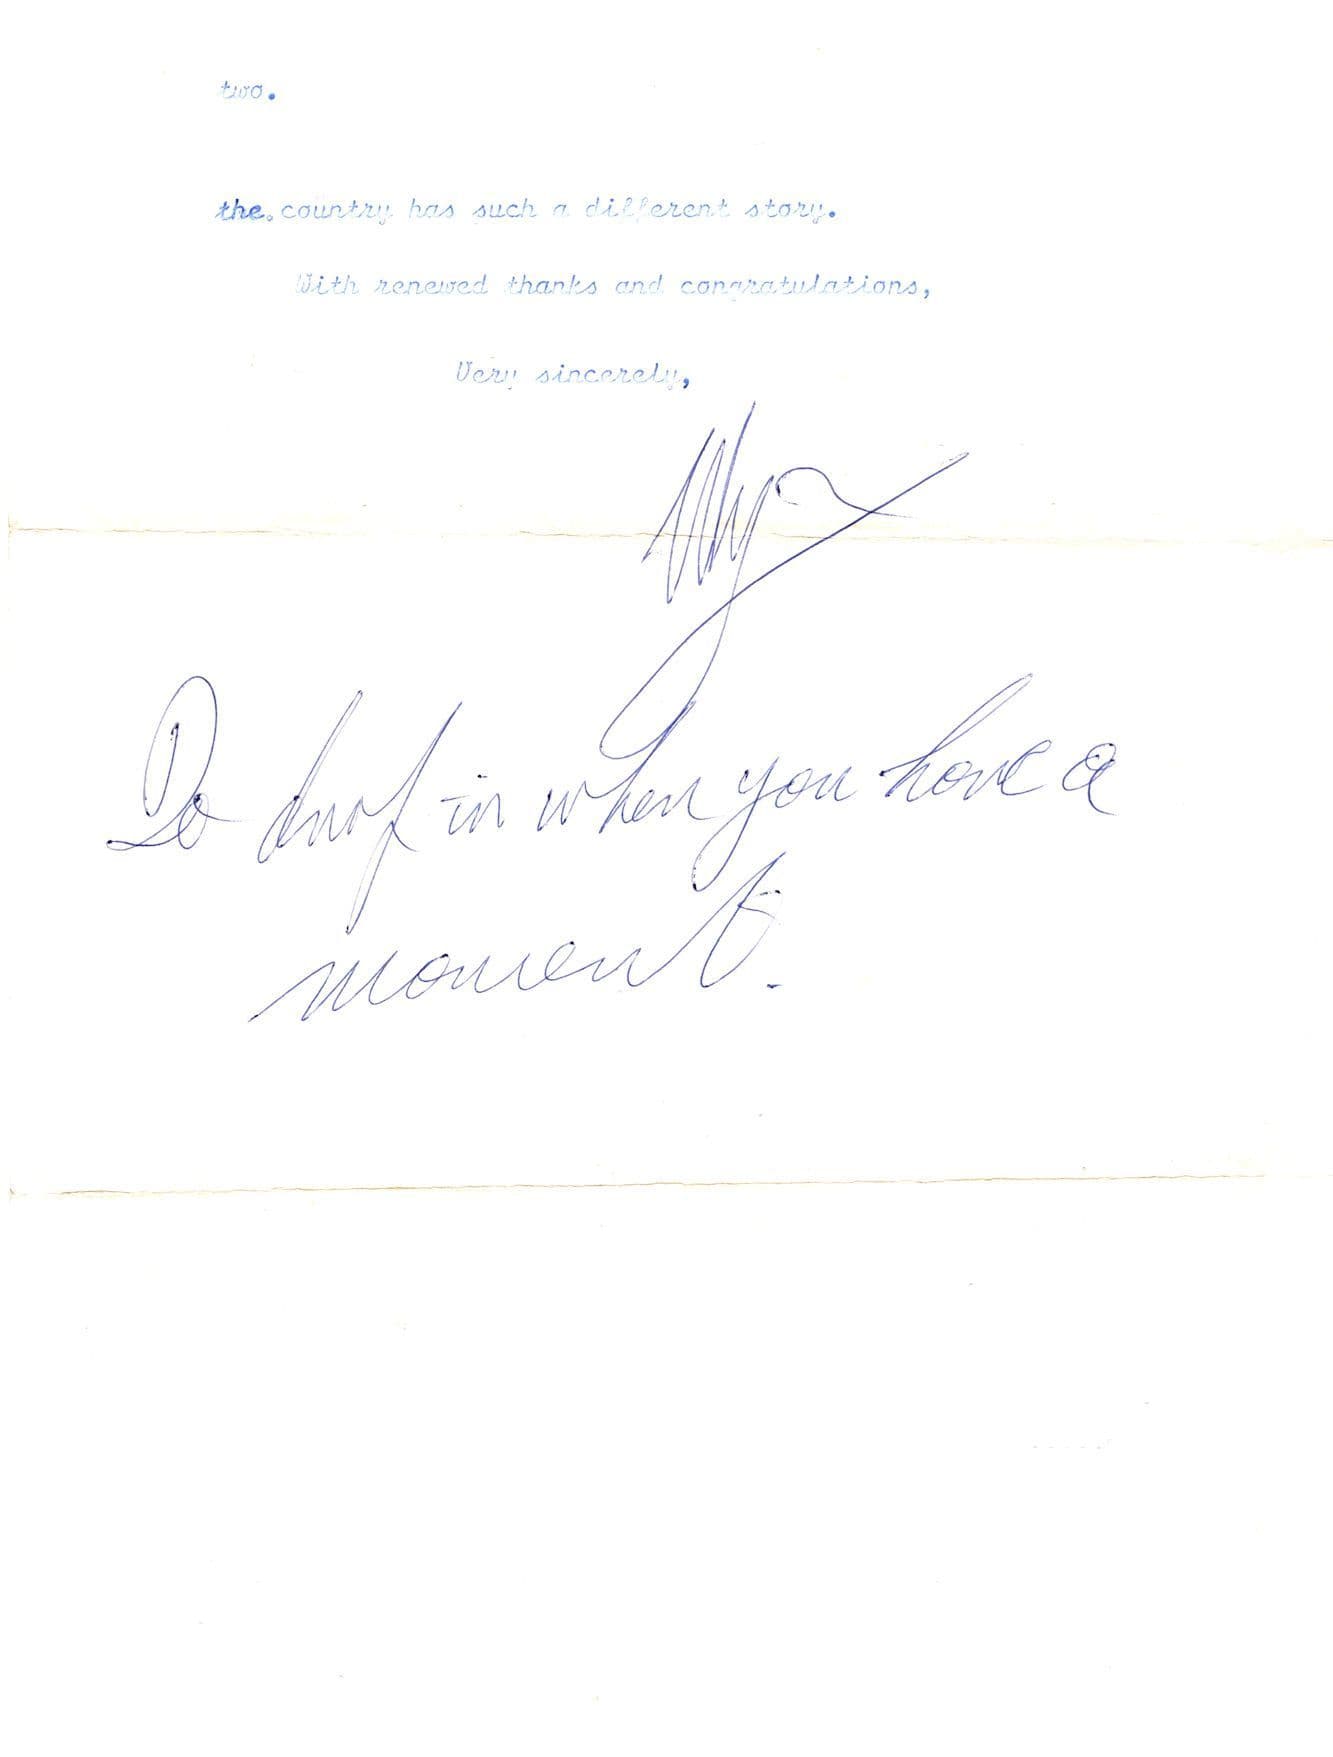 two.
the. country has such a different story.
With renewed thanks and congratulations,
Very sincerely,
Do drop in when you have a
moment.